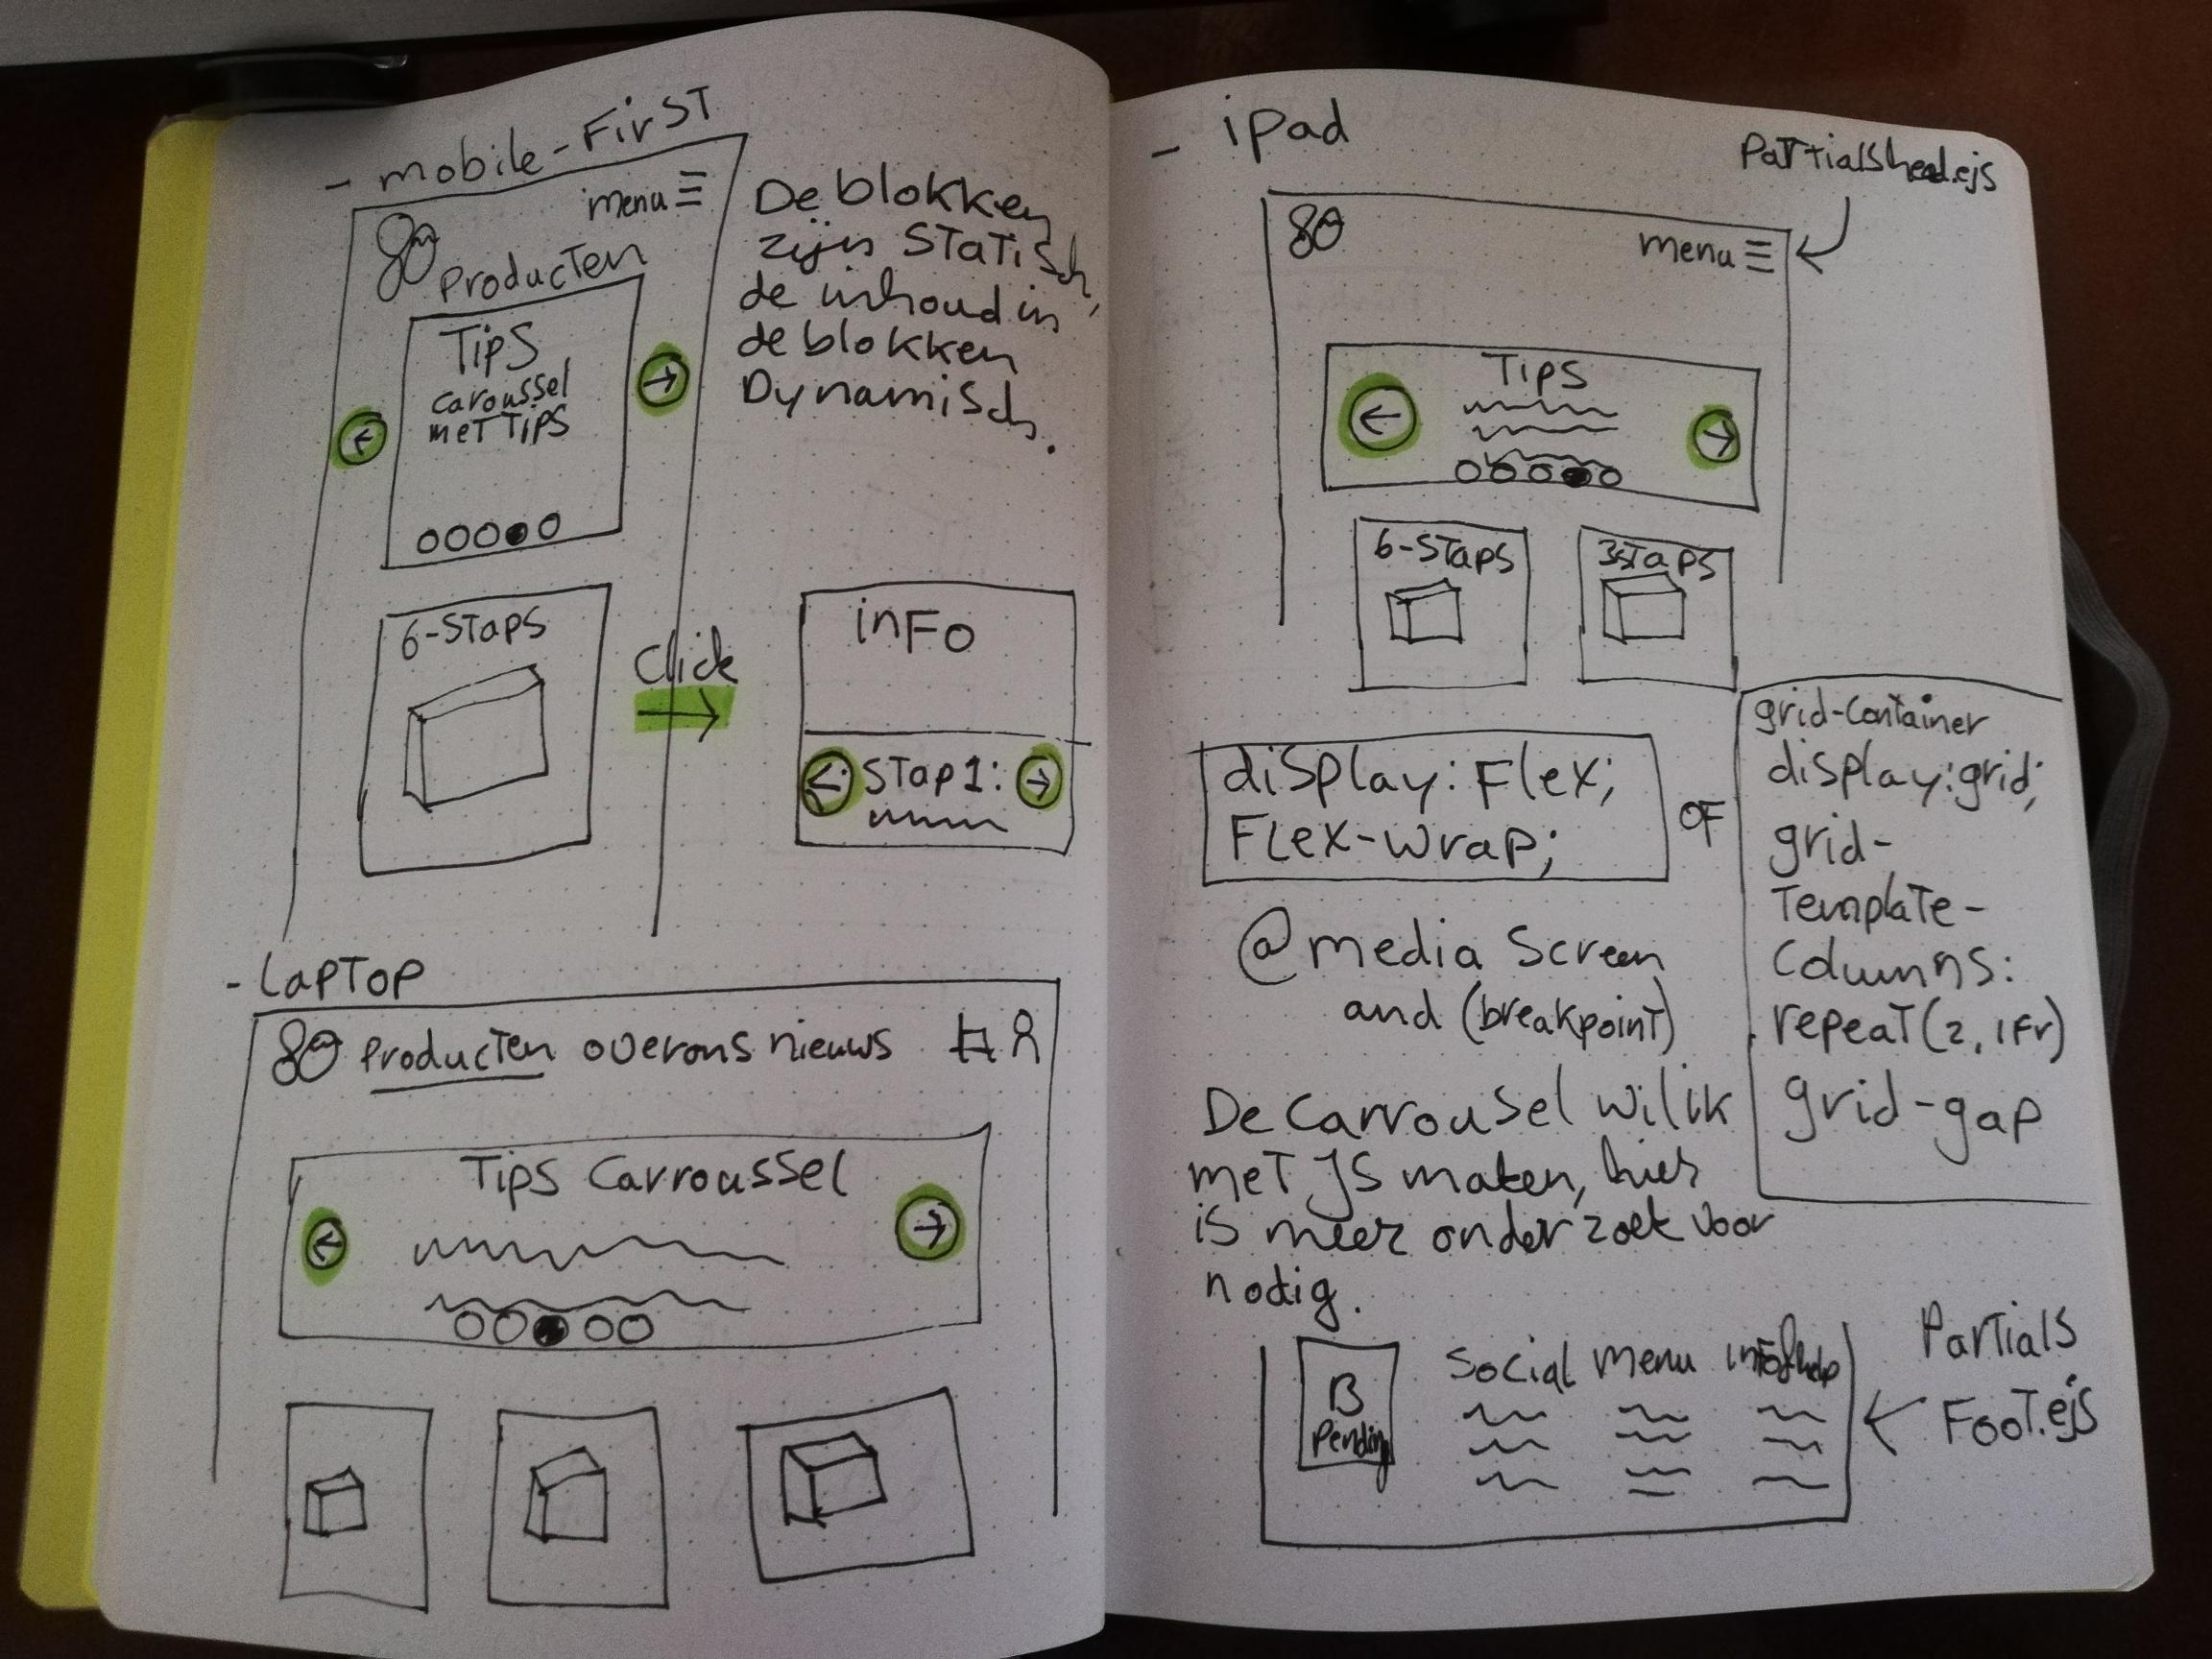 - mobile-First
menu
Producten
Tips
caroussel
met Tips
De blokken
zijn Statisch,
de inhoud in
de blokken
Dynamisch.
6-Staps
Click
inFo
Stap1:
- Laptop
Producten over ons nieuws
Tips Carroussel
- ipad
Partialshead.ejs
menu
Tips
6-Staps
3staps
display: Flex;
Flex-wrap;
OF
grid-container
display:grid;
grid-
Template-
Columns:
repeat(2, 1Fr)
grid-gap
@media Screen
and (breakpoint)
De Carrousel wil ik
met JS maken, hier
is meer onderzoek voor
nodig.
B
Pending
Social Menu
Partials
Foot.ejs